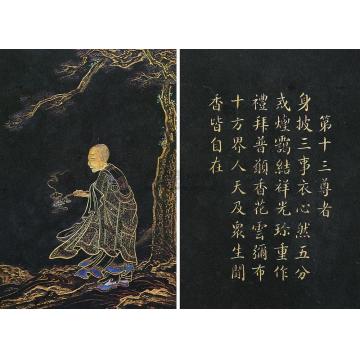 第十三尊者
身披三事衣心然五分
戒煙靄結祥光珍重作
禮拜普願香花雲彌布
十方界人天及眾生聞
香皆自在